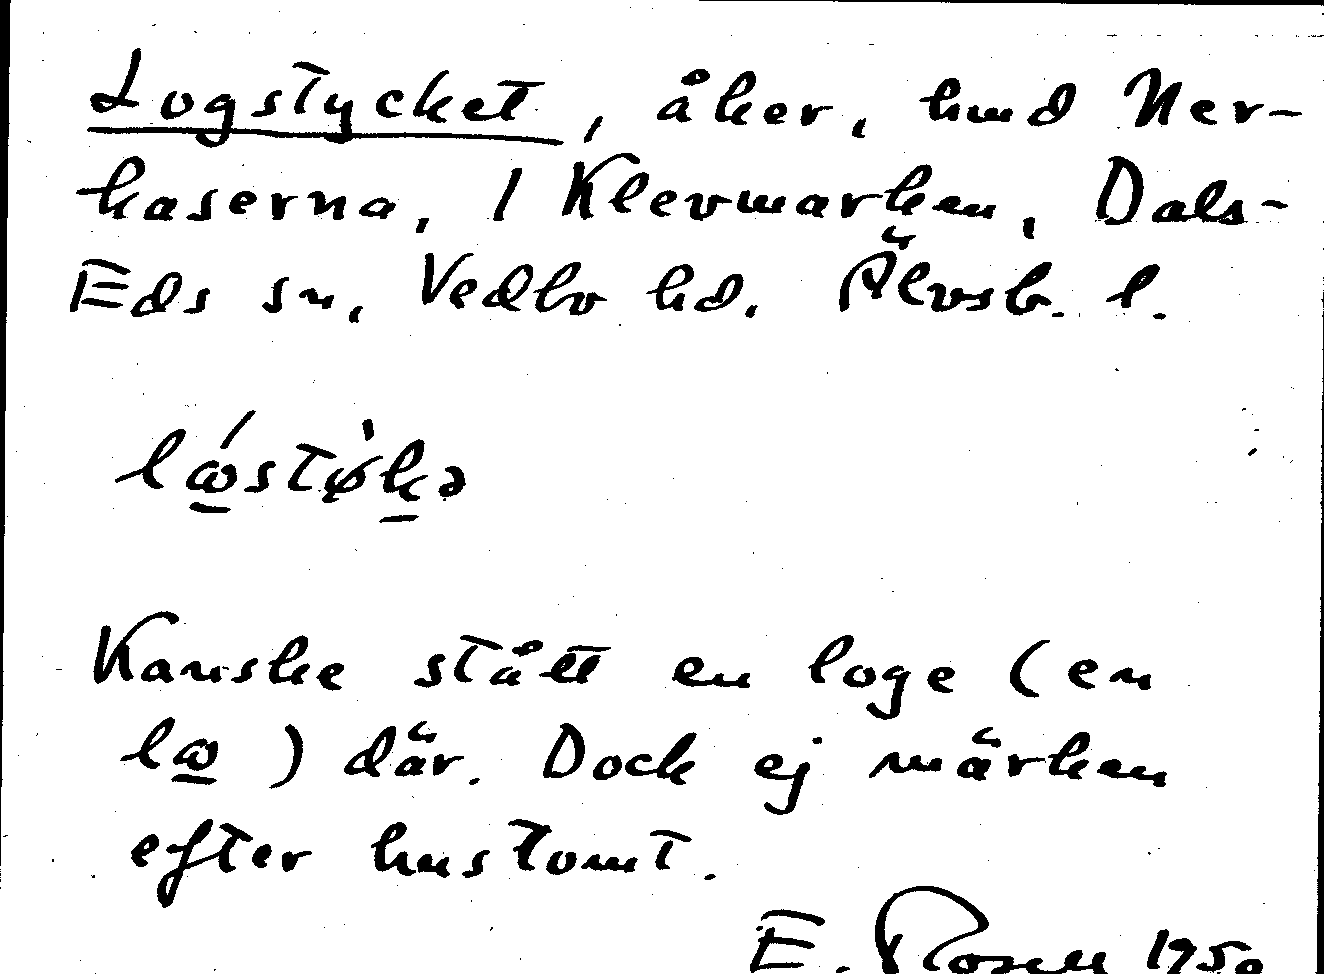 Logstycket, åker, hmd Ner-
kaserna, 1 Klevmarken, Dals-
Eds sn, Vedbo hd. Älvsb. l.
lǿstø̀kə
Kanske stått en loge (en
lω̲ ) där. Dock ej märken
efter hustomt.
E. Rosell 1950